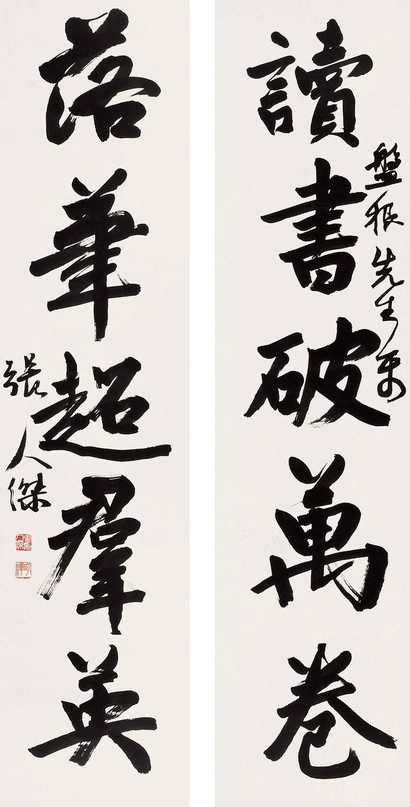 讀書破萬卷
盤根先生正
落筆超羣英
張人傑